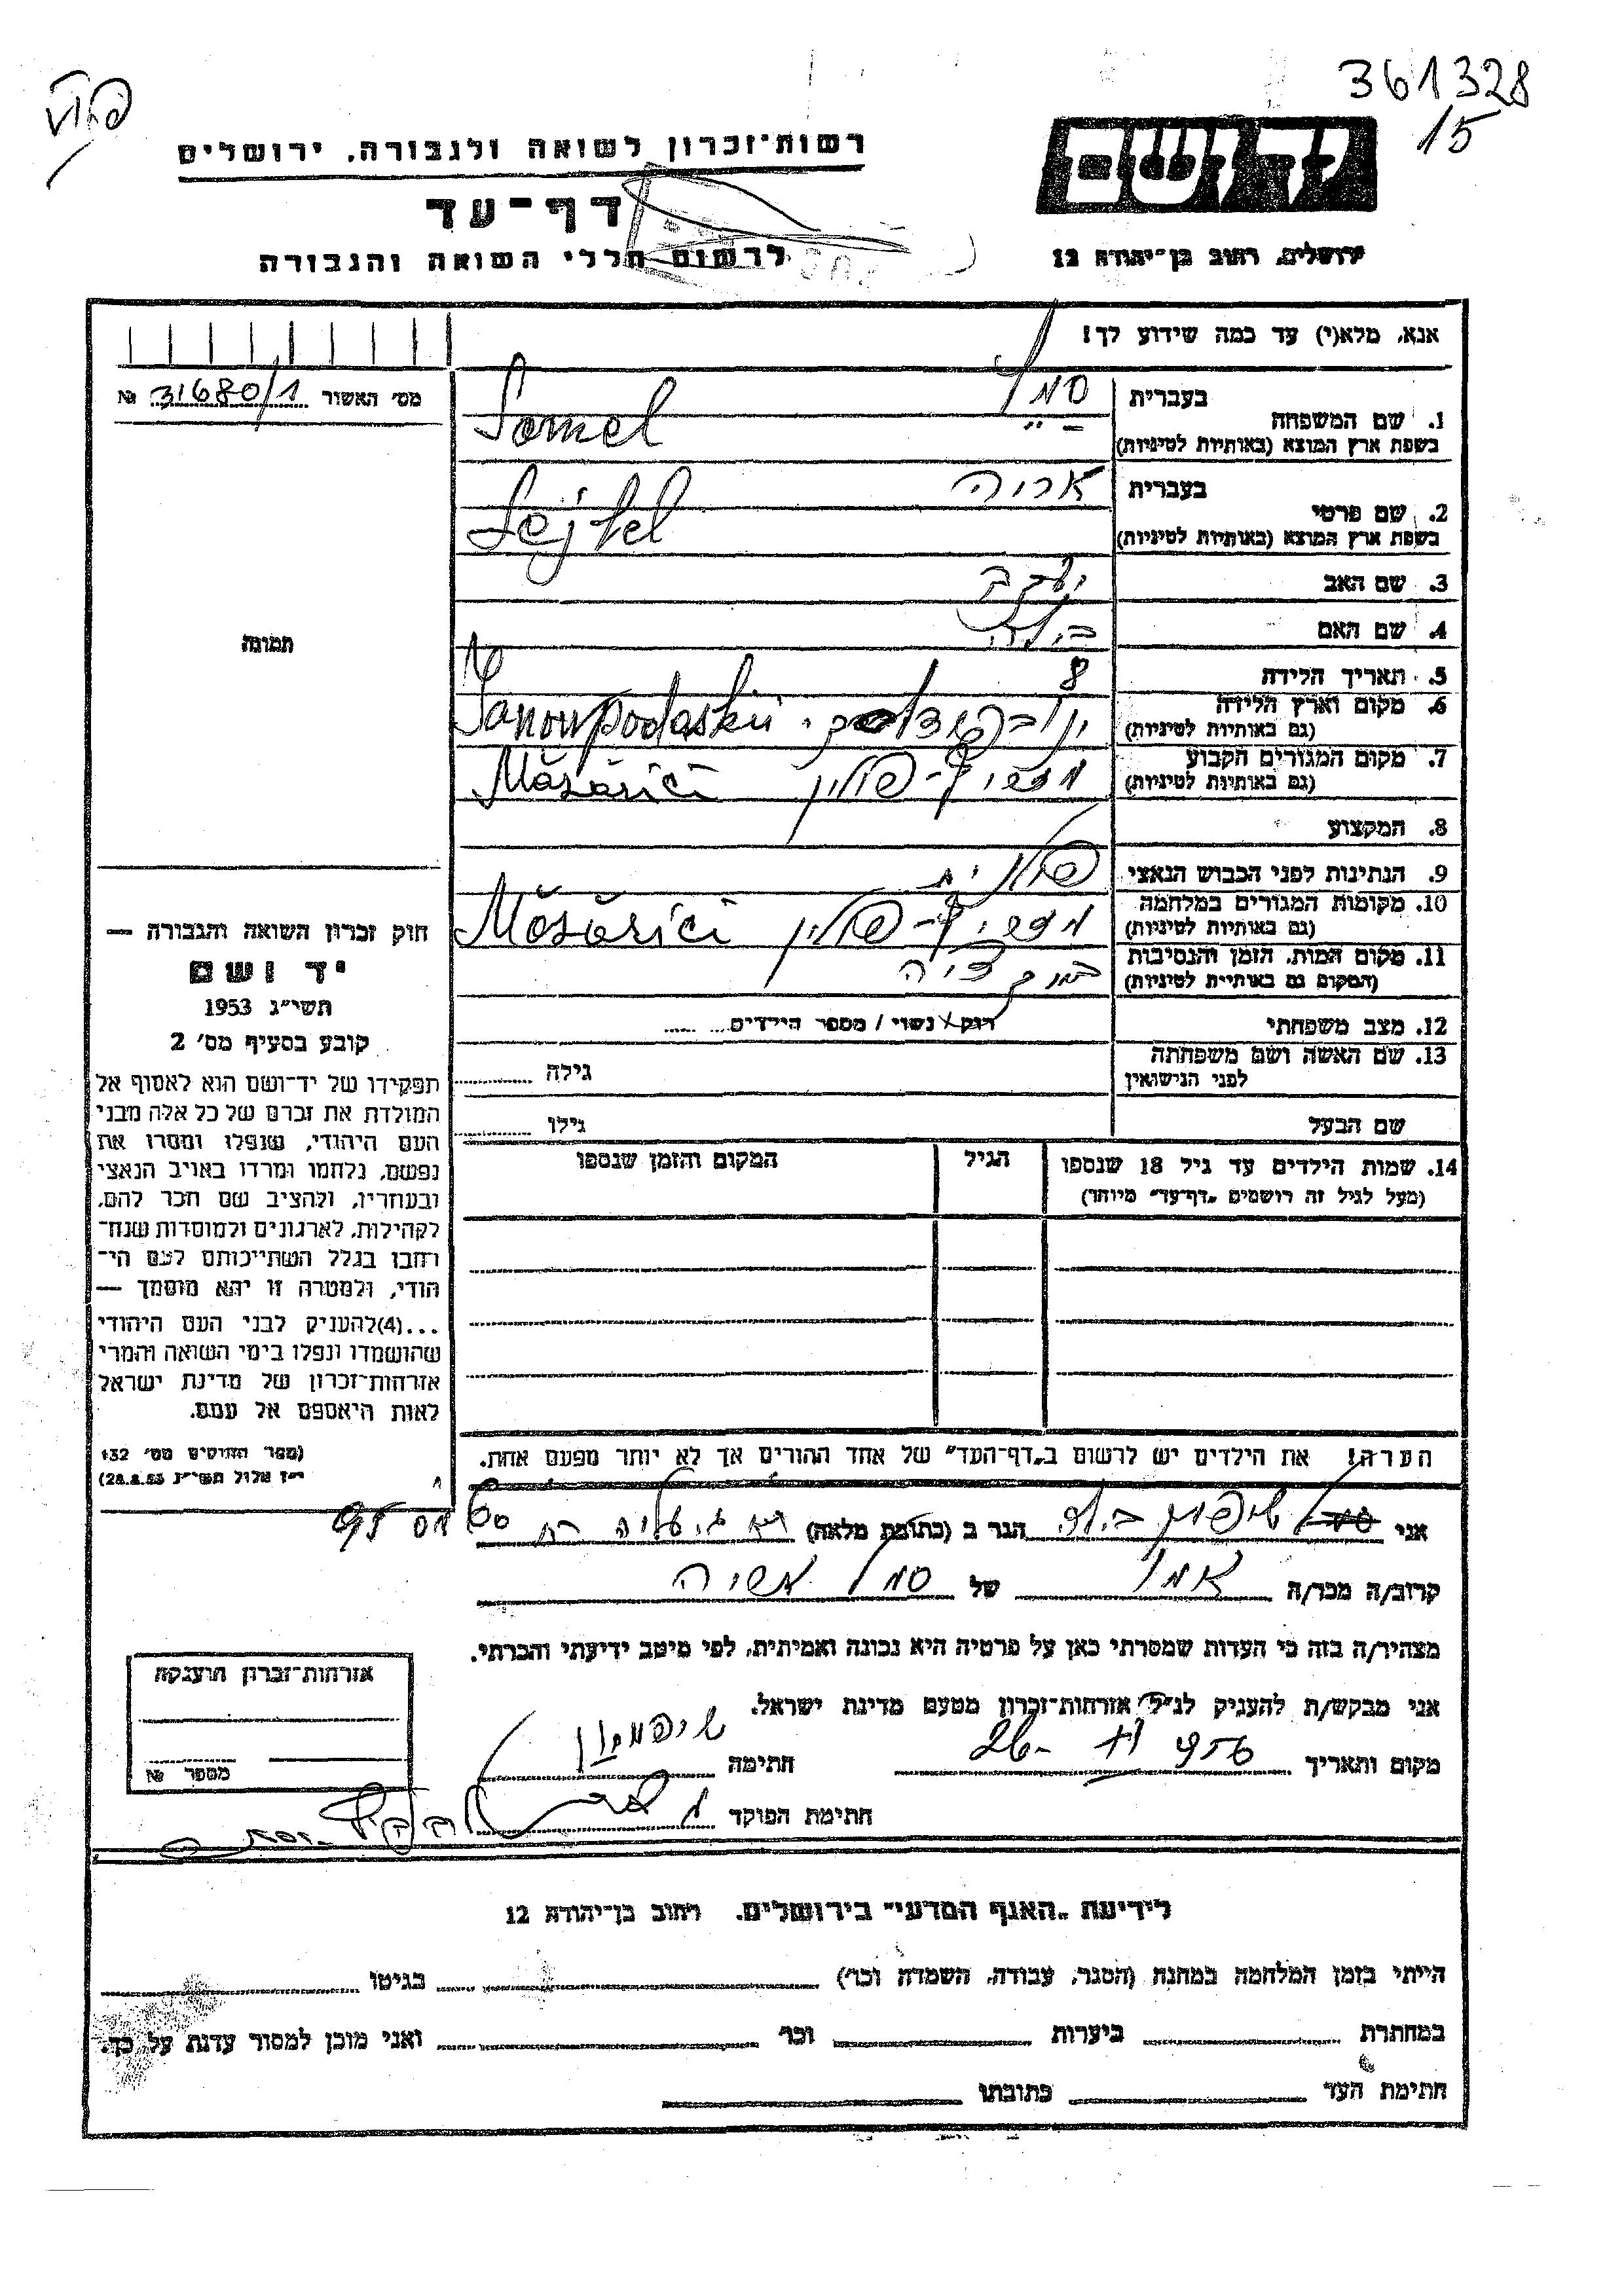 361328
15
רשות־זכרון לשואה ולגבורה, ירושלים
יד ושם
דף־עד
לרשום חללי השואה והגבורה
ירושלים, רחוב בן־יהודה 12
אנא, מלא(י) עד כמה שידוע לך!
מס' האשור 31680/1 №
בעברית סמל
1. שם המשפחה
בשפת ארץ המוצא (באותיות לטיניות) Somel
בעברית אריה
2. שם פרטי
בשפת ארץ המוצא (באותיות לטיניות) Lejbel
3. שם האב יעקב
4. שם האם
5. תאריך הלידה 8
6. מקום וארץ הלידה
(גם באותיות לטיניות) Janowpodaskii
7. מקום המגורים הקבוע
(גם באותיות לטיניות) פולין Mažariči
8. המקצוע
9. הנתינות לפני הכבוש הנאצי פולנית
10. מקומות המגורים במלחמה
(גם באותיות לטיניות) פולין Možariči
11. מקום המות, הזמן והנסיבות
(המקום גם באותיית לטיניות)
12. מצב משפחתי רוק / נשוי / מספר הילדים
13. שם האשה ושם משפחתה
לפני הנישואין גילה
שם הבעל גילו
14. שמות הילדים עד גיל 18 שנספו הגיל המקום והזמן שנספו
(מעל לגיל זה רושמים „דף־עד" מיוחד)
הערה! את הילדים יש לרשום ב„דף־העד" של אחד ההורים אך לא יותר מפעם אחת.
תמונה
חוק זכרון השואה והגבורה —
יד ושם
תשי"ג 1953
קובע בסעיף מס' 2
תפקידו של יד־ושם הוא לאסוף אל
המולדת את זכרם של כל אלה מבני
העם היהודי, שנפלו ומסרו את
נפשם, נלחמו ומרדו באויב הנאצי
ובעוזריו, ולהציב שם וזכר להם,
לקהילות, לארגונים ולמוסדות שנח־
רבו בגלל השתייכותם לעם הי־
הודי, ולמטרה זו יהא מוסמך —
...(4)להעניק לבני העם היהודי
שהושמדו ונפלו בימי השואה והמרי
אזרחות־זכרון של מדינת ישראל
לאות היאספם אל עמם.
(ספר החוקים מס' 132
י"ז אלול תשי"ג 28.8.53)
אני הגר ב (כתובת מלאה)
קרוב/ה מכר/ה של סמל אריה
מצהיר/ה בזה כי העדות שמסרתי כאן על פרטיה היא נכונה ואמיתית, לפי מיטב ידיעתי והכרתי.
אני מבקש/ת להעניק לנ"ל אזרחות־זכרון מטעם מדינת ישראל.
מקום ותאריך 26 חתימה
חתימת הפוקד
אזרחות־זכרון הוענקה
מספר №
לידיעת „האגף המדעי" בירושלים, רחוב בן־יהודה 12
הייתי בזמן המלחמה במחנה (הסגר, עבודה, השמדה וכו') בגיטו
במחתרת ביערות וכו' ואני מוכן למסור עדות על כך.
חתימת העד כתובתו